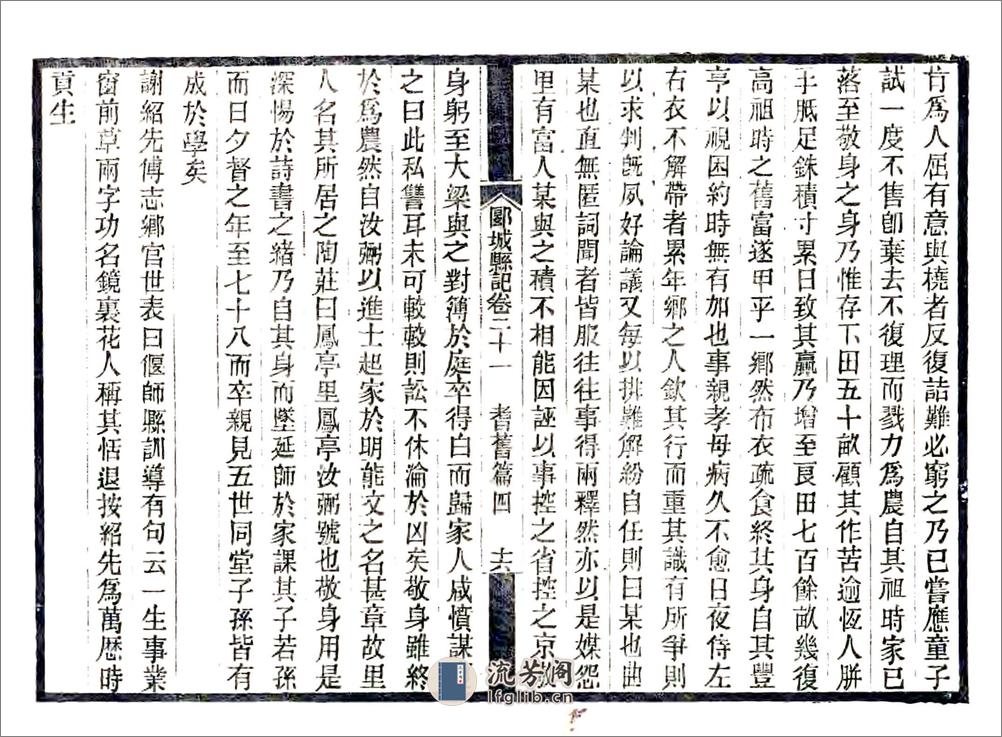 肯爲人屈有意與橈者反復詰難必窮之乃已嘗應童子
試一度不售卽棄去不復理而戮力爲農自其祖時家已
落至敬身之身乃惟存下田五十畝顧其作苦逾恆人胼
手胝足銖積寸累日致其贏乃增至良田七百餘畝幾復
高祖時之舊富遂甲乎一鄉然布衣疏食終其身自其豐
亨以視困約時無有加也事親孝母病久不愈日夜侍左
右衣不解帶者累年鄉之人欽其行而重其識有所爭則
以求判旣夙好論議又每以排難解紛自任則曰某也曲
某也直無匿詞聞者皆服往往事得兩釋然亦以是媒怨
里有富人某與之積不相能因誣以事控之省控之京
郾城縣記卷二十一 耆舊篇四 六
身躬至大梁與之對簿於庭卒得白而歸家人咸憤謀
之曰此私讐耳未可較較則訟不休淪於凶矣敬身雖終
於爲農然自汝弼以進士起家於明能文之名甚章故里
人名其所居之陶莊曰鳳亭里鳳亭汝弼號也敬身用是
深惕於詩書之緒乃自其身而墜延師於家課其子若孫
而日夕督之年至七十八而卒親見五世同堂子孫皆有
成於學矣
謝紹先傅志鄉官世表曰偃師縣訓導有句云一生事業
窗前草兩字功名鏡裏花人稱其恬退按紹先爲萬厯時
貢生
流芳阁
lfglib.cn